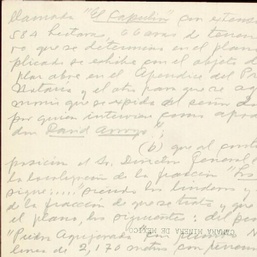 llamada "El Capulin" con extensión
584 hectaras, 66 aras de terreno
ro que se determina en el plano
plicado se exhibe con el objeto de
plar obre en el Apendice del Pr
Notario y el otro para que se ag
monio que se expida del señor
por quien interviene como apro
don David Arroyo".
(b) que el cont
posición el Sr. Director General
la localización de la fracción
signe:...." siendo los linderos y
de la fracción de que se trata, y que
el plano, los siguientes: del pun
"Piedra Agujerada
dines de 2,170 metros con terreno
CAMARA MINERA DE MEXICO